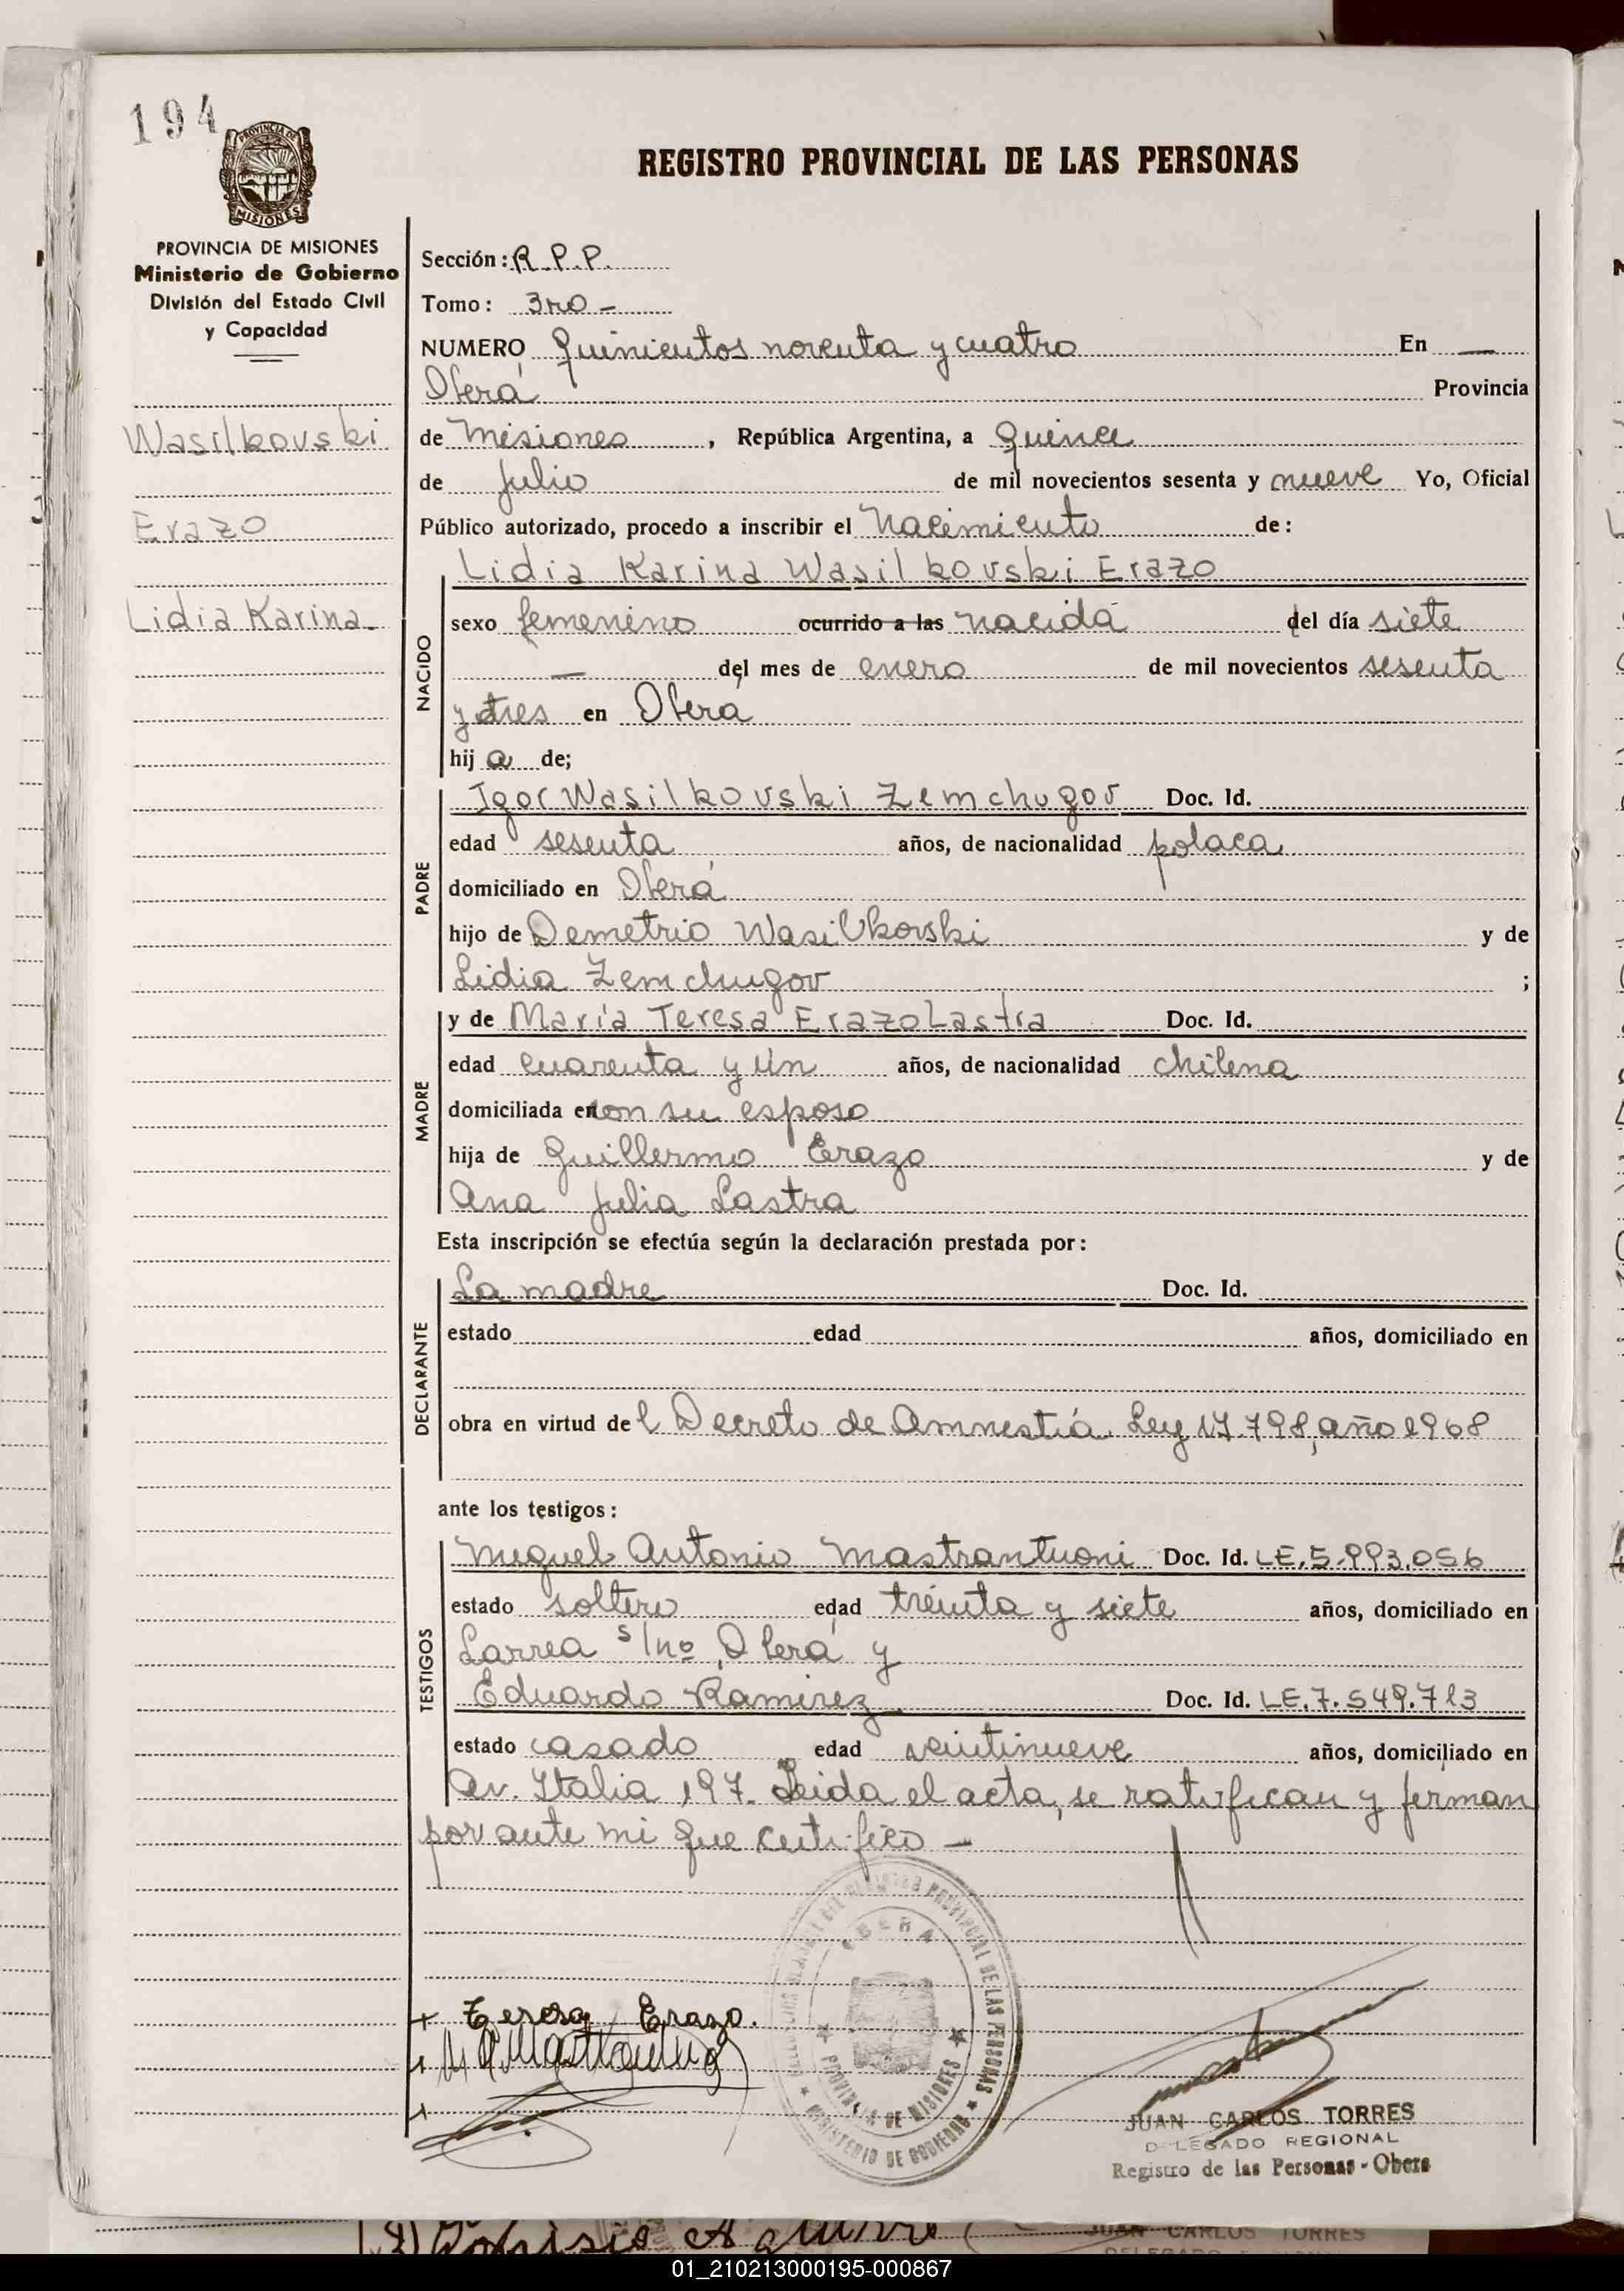 194
PROVINCIA DE MISIONES
PROVINCIA DE MISIONES
Ministerio de Gobierno
División del Estado Civil
y Capacidad
Wasilkovski
Erazo
Lidia Karina
REGISTRO PROVINCIAL DE LAS PERSONAS
Sección: R.P.P.
Tomo: 3ro -
NUMERO Quinientos noventa y cuatro En —
Oberá Provincia
de Misiones, República Argentina, a Quince
de julio de mil novecientos sesenta y nueve Yo, Oficial
Público autorizado, procedo a inscribir el Nacimiento de:
Lidia Karina Wasilkovski Erazo
NACIDO
sexo femenino ocurrido a las nacida del día siete
— del mes de enero de mil novecientos sesenta
y tres en Oberá
hija de;
PADRE
Igor Wasilkovski Zemchugov Doc. Id.
edad sesenta años, de nacionalidad polaca
domiciliado en Oberá
hijo de Demetrio Wasilkovski y de
Lidia Zemchugov ;
MADRE
y de María Teresa Erazo Lastra Doc. Id.
edad cuarenta y un años, de nacionalidad chilena
domiciliada en con su esposo
hija de Guillermo Erazo y de
Ana Julia Lastra
Esta inscripción se efectúa según la declaración prestada por:
DECLARANTE
La madre Doc. Id.
estado edad años, domiciliado en
obra en virtud del Decreto de Amnestía Ley 17.798, año 1968
ante los testigos:
TESTIGOS
Miguel Antonio Mastrantuoni Doc. Id. LE.5.993.056
estado soltero edad treinta y siete años, domiciliado en
Larrea s/nº, Oberá y
Eduardo Ramirez Doc. Id. LE.7.549.713
estado casado edad veintinueve años, domiciliado en
Av. Italia 197. Leida el acta, se ratifican y firman
por ante mi que certifico —
Teresa Erazo.
OBERA
PROVINCIA DE MISIONES
MINISTERIO DE GOBIERNO
JUAN CARLOS TORRES
DELEGADO REGIONAL
Registro de las Personas - Obera
JUAN CARLOS TORRES
01_210213000195-000867